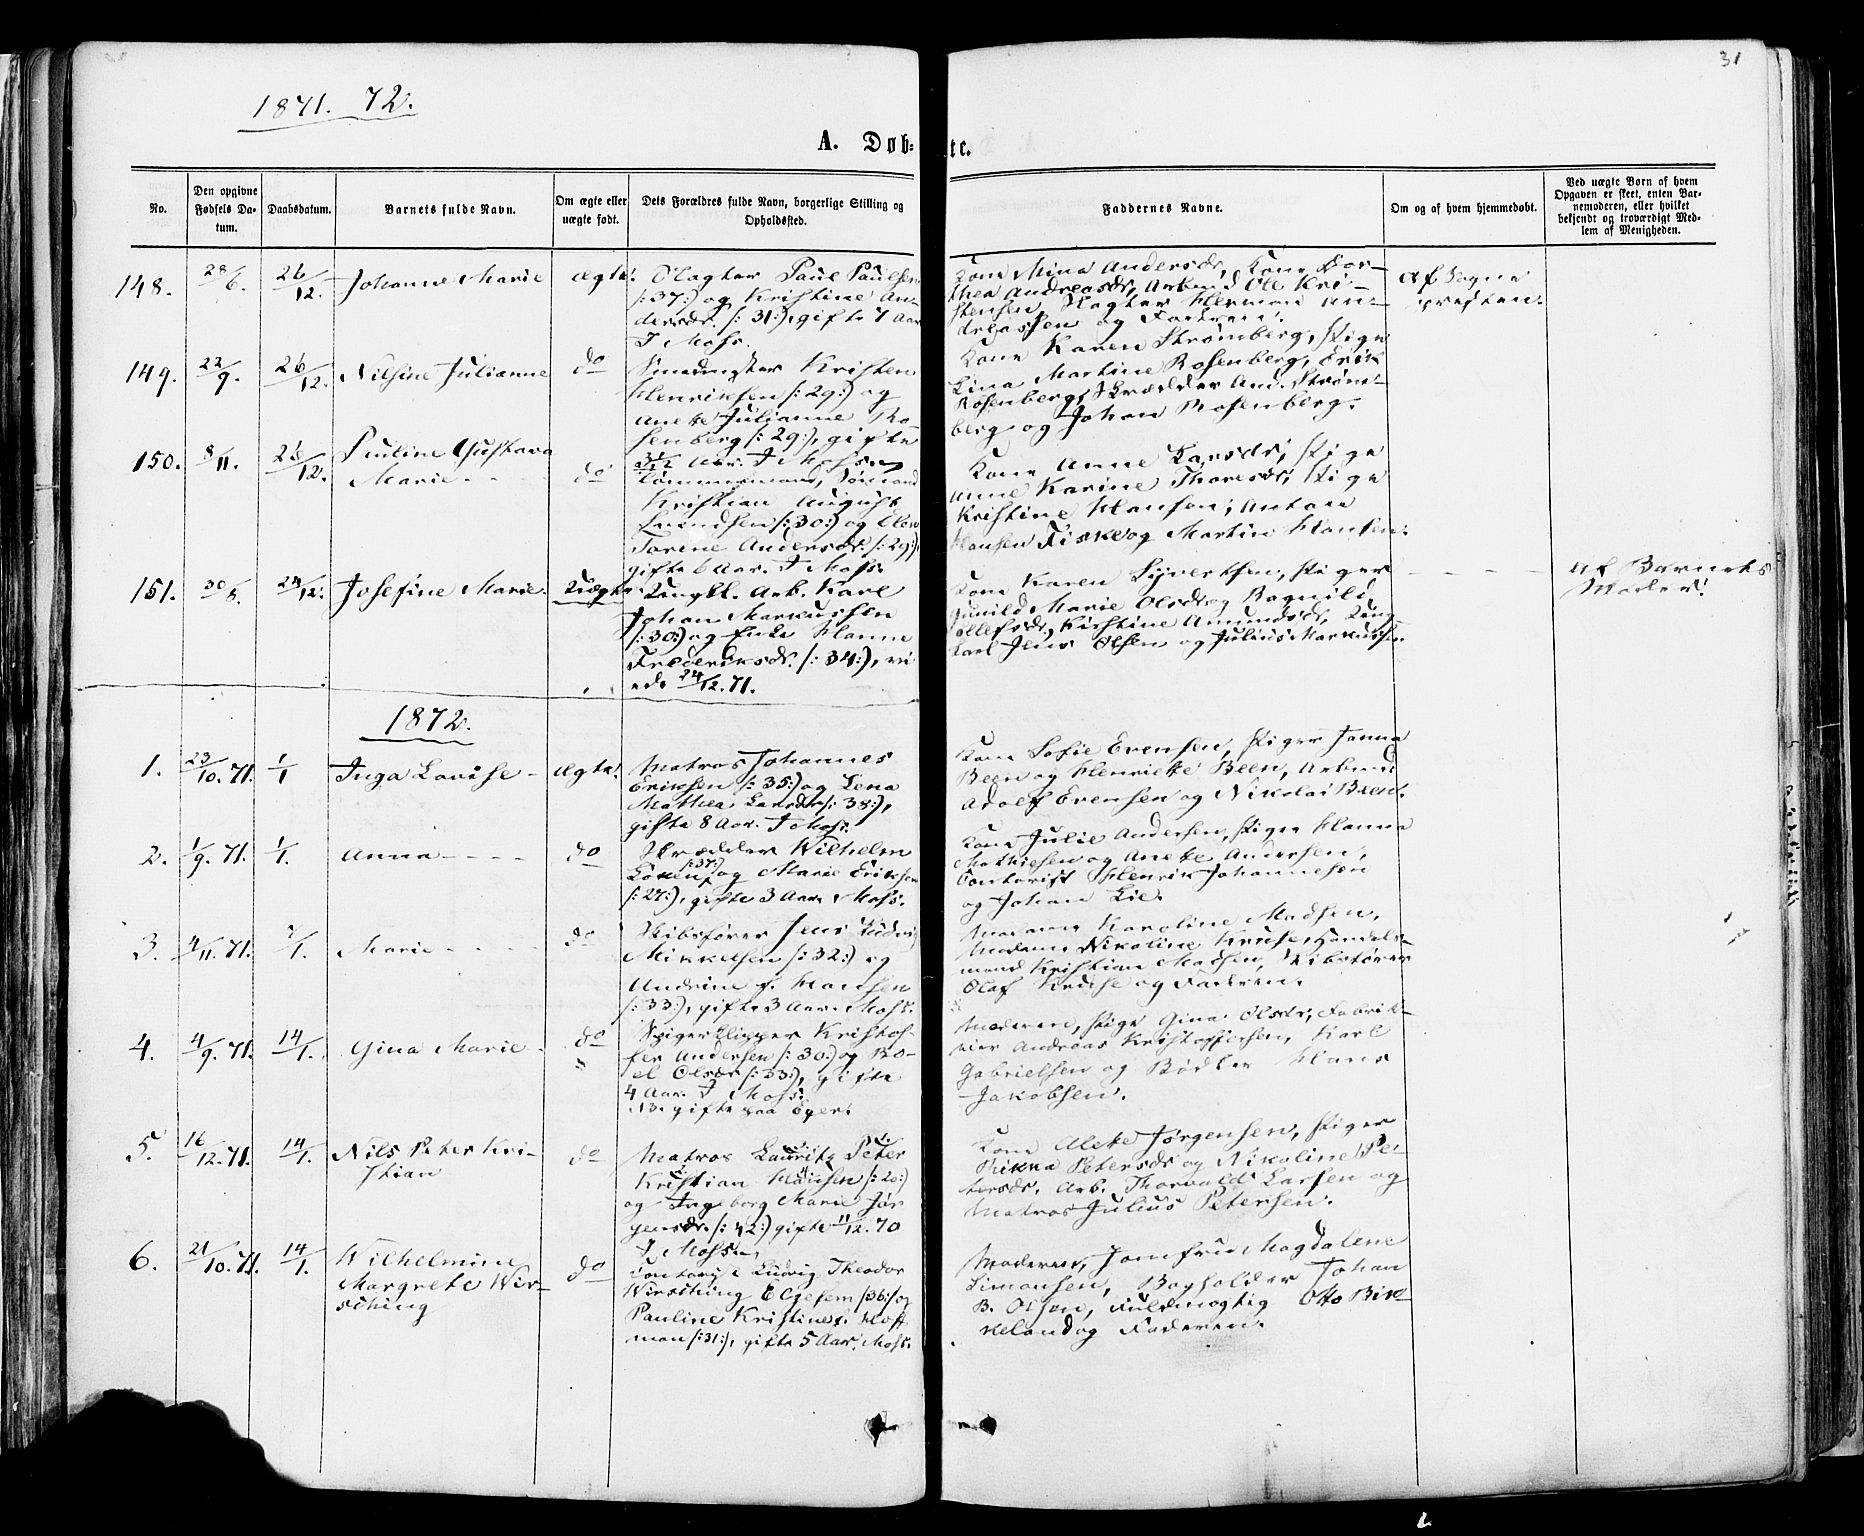 31
1871. 72.
A. Døb-te.
No.
Den opgivne Fødsels Da-tum.
Daabsdatum.
Barnets fulde Navn.
Om ægte eller uægte født.
Dets Forældres fulde Navn, borgerlige Stilling og Opholdssted.
Faddernes Navne.
Om og af hvem hjemmedøbt.
Ved uægte Børn af hvem Opgaven er skeet, enten Bar-nemoderen, eller hvilket bekjendt og troværdigt Med-lem af Menigheden.
148. 28/6. 26/12. Johanne Marie ægte.
Slagter Paul Paulsen
/:37:/ og Kristine An-
dersdr. /:31:/, gifte 7 Aar
I Moss.
Kone Mina Andersdr, Kone Dor-
thea Andreasdr, Arbmd Ole Kri-
stensen, Slagter Herman An-
dreassen og Faderen.
Af Sogne
presten.
149. 22/9. 26/12. Nilsine Julianne do
Smedmster Kristen
Henriksen /:29:/ og
Anette Julianne Ro-
senberg /:29:/, gifte
3 1/2 Aar. I Moss.
Kone Karen Strømberg, Pige
Lina Martine Rosenberg, Erik
Rosenberg, Skrædder And. Strøm-
berg og Johan Rosenberg.
150. 8/11. 26/12. Pauline Gustava
Marie - - - do
Tømmermand, Sømand
Kristian August
/:30:/ og
Torine Andersdr. /:29:/,
gifte 6 Aar. I Moss.
Kone Anne Larsdr, Pige
Anne Karine Thoresdr, Pige
Kristine Hansen, Anton
Hansen Fiske og Martin Hansen.
151. 30/8. 24/12. Josefine Marie. Uægte.
Ungk. Arb. Karl
Johan Markussen
/:30:/ og Enke Hanne
Frederiksdr. /:34:/, vi
ede 24/12.71.
Kone Karen Syvertsen, Piger
Gunild Marie Olsdr og Ragnild
Kirstine Amundsdr, Ung-
karl Jens Olsen og Julius Markussen.
- - - -
Af Barnets
Moder.
1872.
1. 23/10.71. 1/1 Inga Lovise - ægte.
Matros Johannes
Eriksen /:35:/ og Lena
Mathea Larsdr /:38:/,
gifte 8 Aar. I Moss.
Kone Sofie Evensen, Piger Janna
Been og Henriette Been, Arbmd
Adolf Evensen og Nikolai Been.
2. 1/9. 71. 1/1. Anna - - - - do
Skrædder Wilhelm
/:37:/ og Marie Eriksen
/:27:/, gifte 3 Aar. Moss.
Kone Julie Andersen, Piger Hanna
Mathiesen og Anette Andersen,
Contorist Henrik Johannesen
og Johan Lie.
3. 4/11.71. 7/1. Marie - - - - do
Skibsfører Jens Ludvig
Mikkelsen /:32:/ og
Andrine f. Hansen
/:33:/, gifte 3 Aar. Moss.
Madame Karoline Madsen,
Madam Nikoline Kruse, Handels-
mand Kristian Madsen, Skibsfører
Olaf Kruse og Faderen.
4. 4/9. 71. 14/1. Gina Marie - do
Spigerklipper Kristof-
fer Andersen /:30:/ og Bo-
el Olsdr /:33:/, gifte
4 Aar. I Moss.
NB. gifte paa Eger.
Moderen, Pige Gina Olsdr, Fabrik-
eier Andreas Kristoffersen, Karl
Gabrielsen og Bødker Hans
Jakobsen.
5. 16/12.71. 14/1. Nils Peter Kri-
stian do
Matros Lauritz Peter
Kristian Hansen /:20:/
og Ingeborg Marie Jør
gensdr. /:42:/ gifte 11/12.70
I Moss.
Kone Alette Jørgensen, Piger
Rikka Petersdr og Nikoline Pe-
tersdr, Arb. Thorvald Larsen og
Matros Julius Petersen.
6. 21/10.71. 14/1. Wilhelmine
Margrete Wir-
sching do
Contorist Ludvig Theodor
Wirsching Elgesem /:36:/ og
Pauline Kristine f. Hoff
man /:31:/, gifte 5 Aar. Moss.
Moderen, Jomfru Magdalene
Simonsen, Bogholder Johan
B. Olsen, Fuldmægtig Otto Bir-
keland og Faderen.